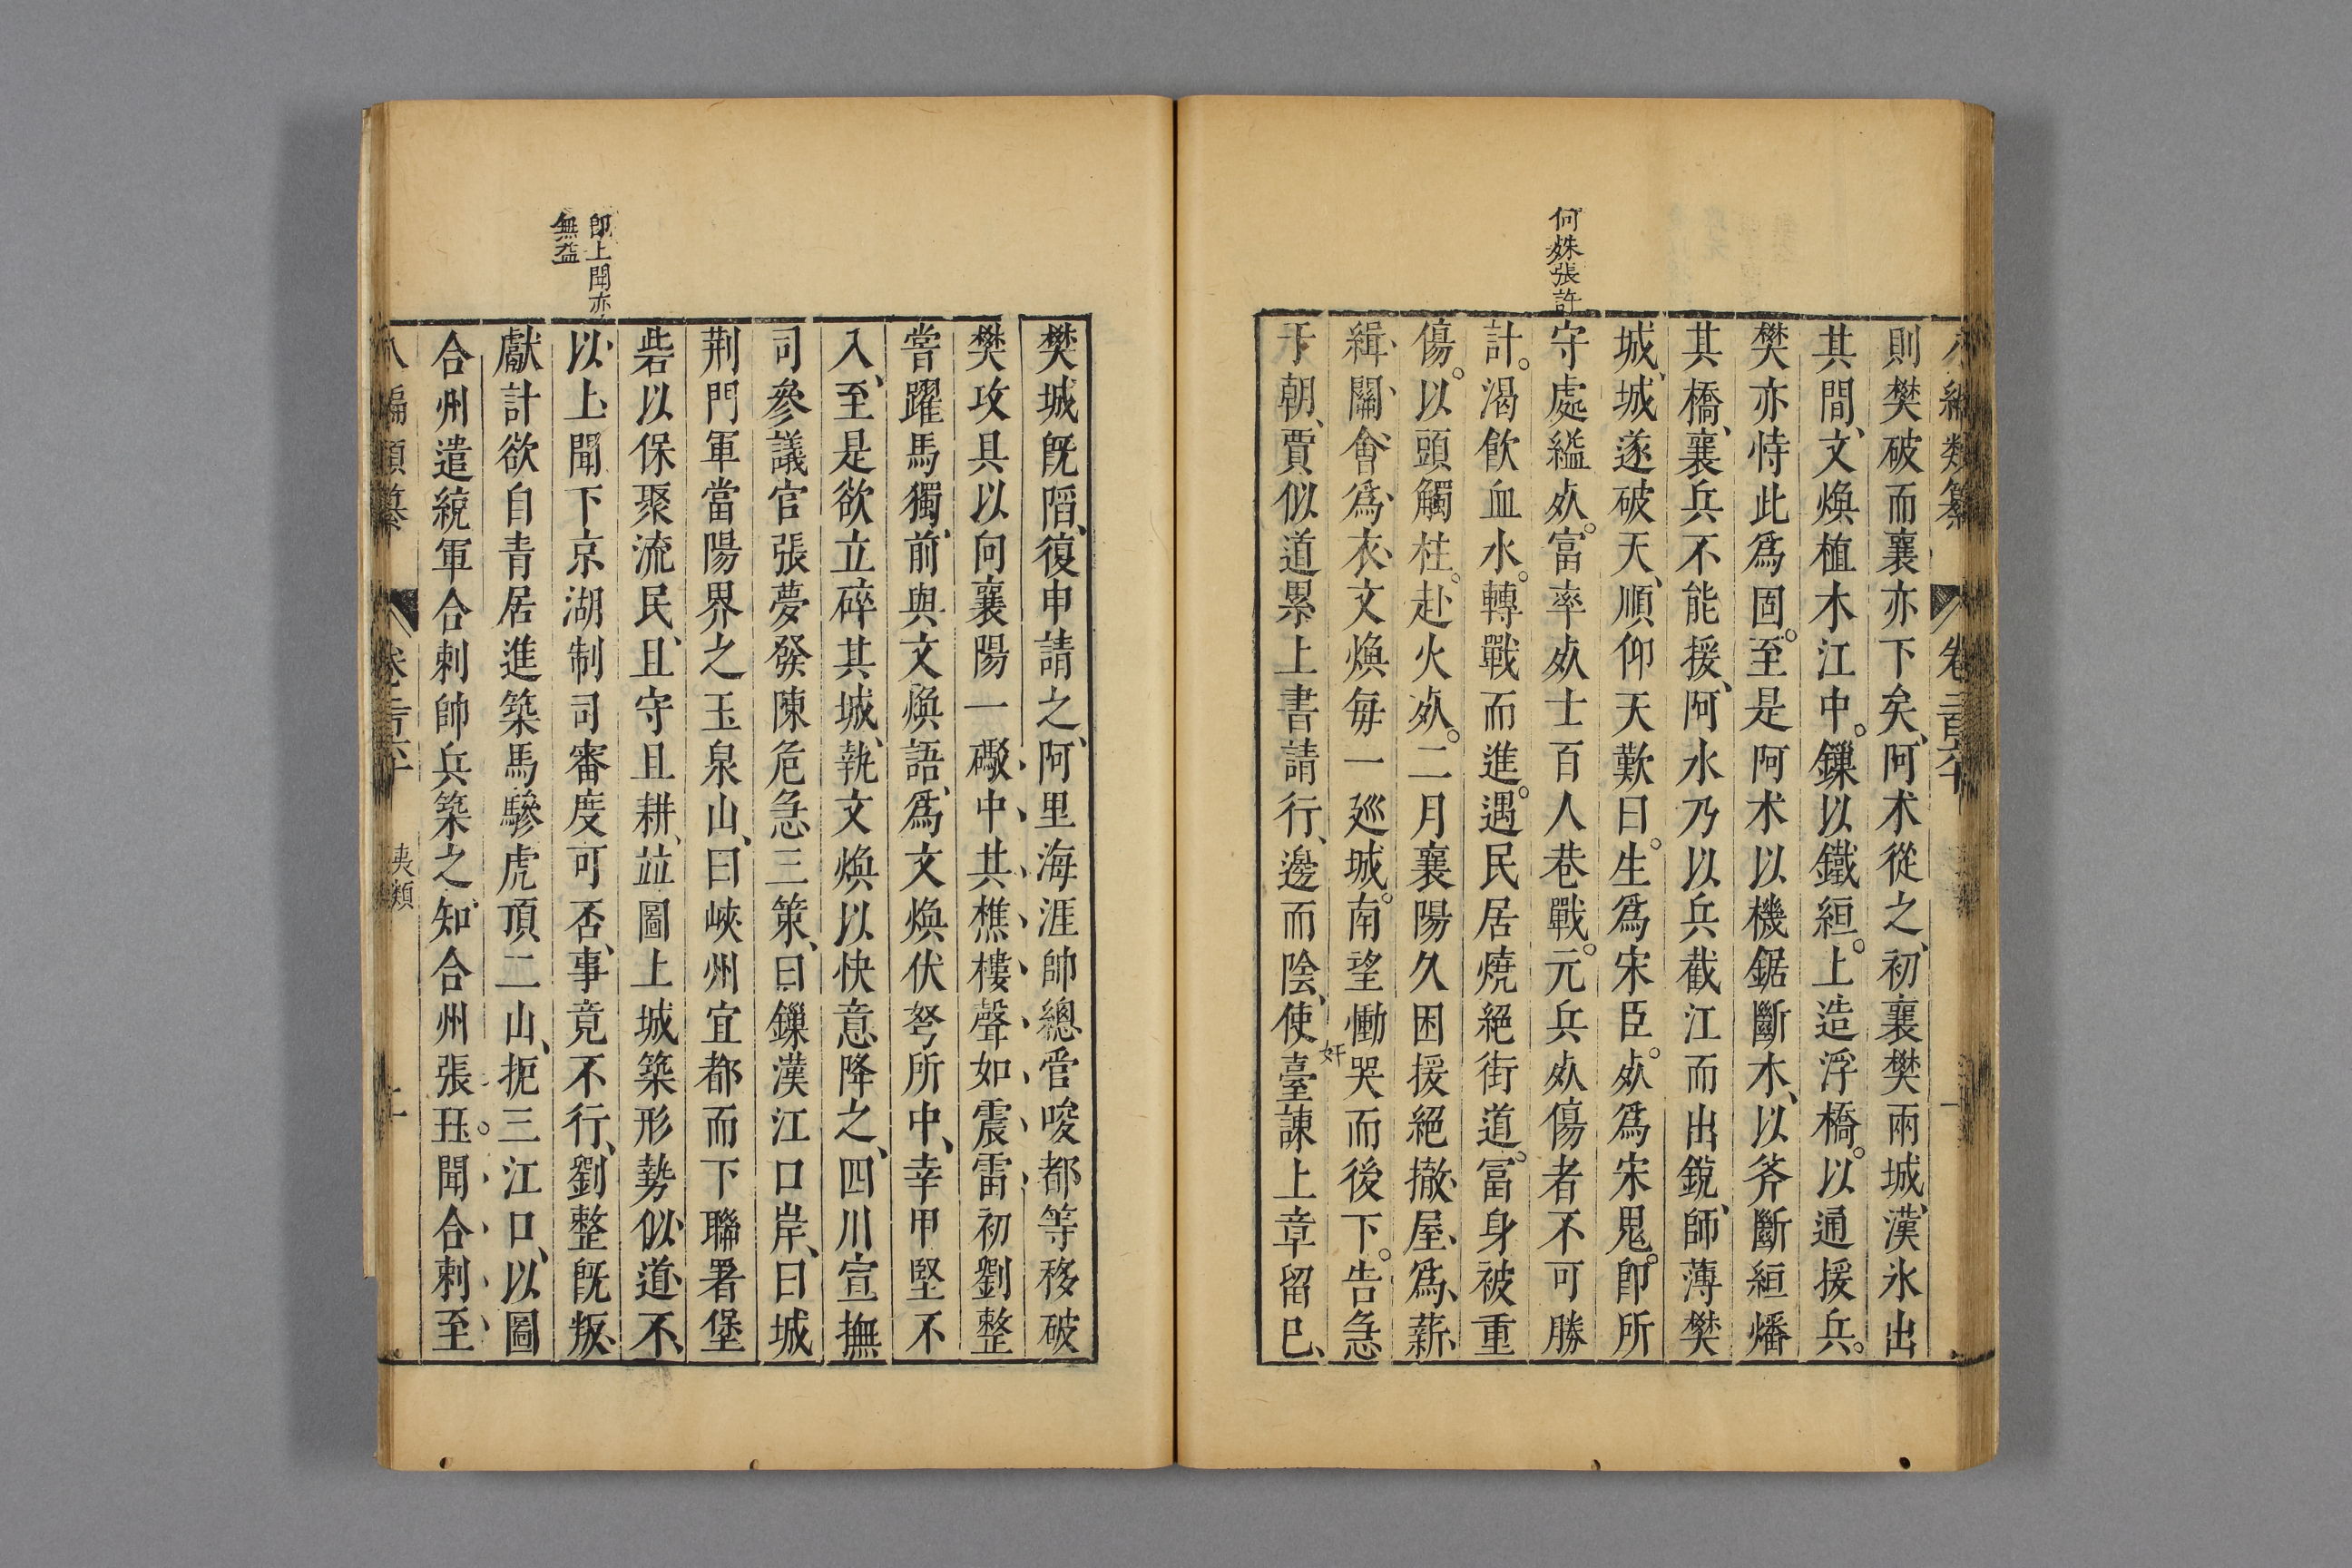 何姝張許
八編類纂
卷二百六十
則樊破而襄亦下矣、阿术從之、初襄樊兩城、漢水出
其間、文煥植木江中。鏁以鐵絙。上造浮橋。以通援兵。
樊亦恃此爲固。至是阿术以機鋸斷木、以斧斷絙燔
其橋、襄兵不能援、阿水乃以兵截江而出銳、師薄樊
城、城遂破天、順仰天歎曰。生爲宋臣。𣦸爲宋鬼。卽所
守處縊𣦸。富率𣦸士百人巷戰。元兵𣦸傷者不可勝
計。渴飲血水。轉戰而進。遇民居燒絕街道。冨身被重
傷。以頭觸柱。赴火𣦸。二月襄陽久困援絕撤、屋、爲、薪、
緝、關、會、爲、衣、文煥每一廵城。南望慟哭而後下。告急
于朝、賈似道累上書請行、邊而陰、使臺諫上章留已、
奸
卽上聞亦
無益
樊城旣䧟、復申請之、阿里海涯帥總管唆都等移破
樊攻具以向襄陽一礮、中、其、樵、樓、聲、如、震、雷、初劉整
嘗躍馬獨、前與文煥語、爲文煥伏弩所中、幸甲堅不
入、至是欲立碎其城、執文煥以快意、降之、四川宣撫
司參議官張夢發陳危急三策、曰鏁漢江口岸、曰城
荆門軍當陽界之玉泉山、曰峽州宜都而下聯署堡
砦以保聚流民、且守且耕、並圖上城築形勢似、道、不、
以、上、聞下京湖制司審度可否、事竟不行、劉整旣叛、
獻計欲自青居進築馬驂虎頂二山、扼三江口、以圖
合州遣統軍合剌帥兵築之、知合州張珏。聞合剌至、
八編類纂
卷二百六十
夷類